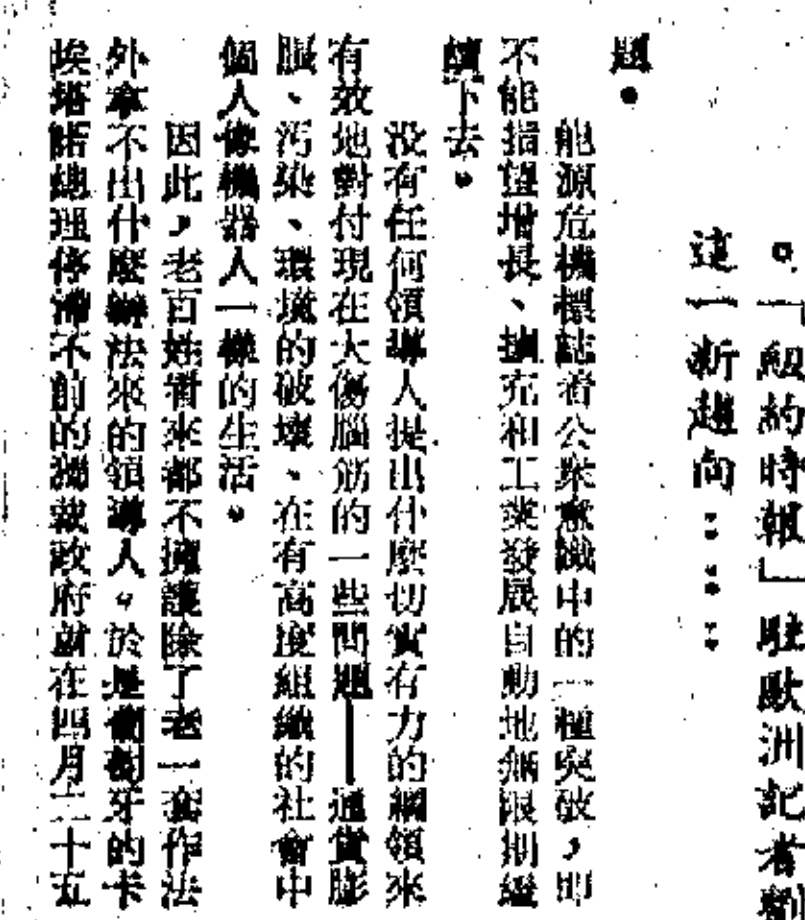 。「紐約時報」駐歐洲記者
這一新趨向：……
題。
能源危機標誌着公衆意識中的一種突破，即
不能指望增長、擴充和工業發展自動地無限期繼
續下去。
没有任何領導人提出什麼切實有力的綱領來
有效地對付現在大傷腦筋的一些問題——通貨膨
脹、污染、環境的破壞、在有高度組織的社會中
個人像機器人一樣的生活。
因此，老百姓看來都不擁護除了老一套作法
外拿不出什麼辦法來的領導人。於是葡萄牙的卡
埃塔諾總理停滯不前的獨裁政府就在四月二十五